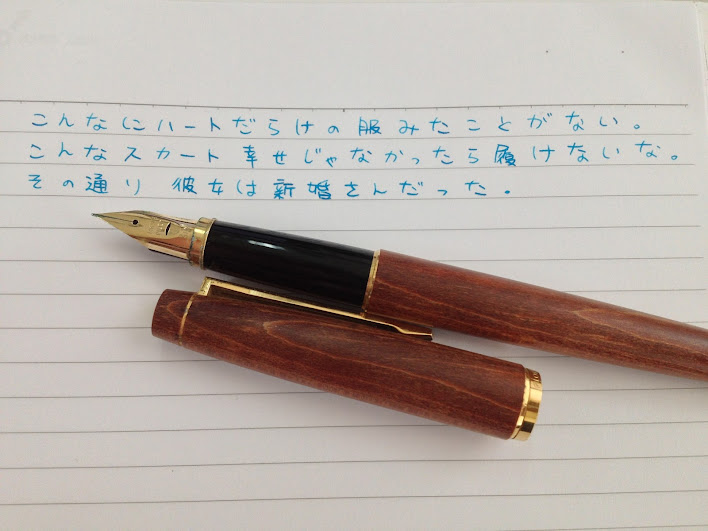 こんなにハートだらけの服みたことがない。
こんなスカート 幸せじゃなかったら履けないな。
その通り 彼女は新婚さんだった。